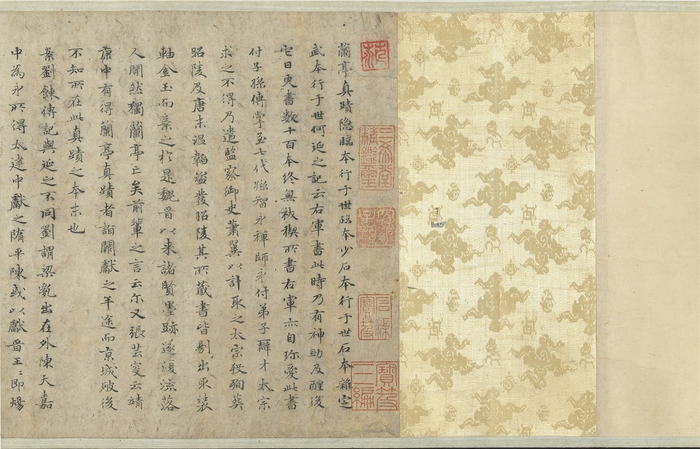 三希堂精鑑璽
宜子孫
寶笈三編
蘭亭真蹟隱臨本行于世臨本少石本行于世石本雜定
武本行于世何延之記云右軍書此時乃有神助及醒後
它日更書數十百本終無祓禊所書右軍亦自珍愛此書
付子孫傳掌至七代孫智永禪師永付弟子辯才太宗
求之不得乃遣監察御史蕭翼以計取之太宗後殉葬
昭陵及唐末温韜盜發昭陵其所藏書皆剔出取裝
軸金玉而棄之於是魏晉以來諸賢墨跡遂復流落
人間然獨蘭亭亡矣前輩之言云尔又張芸叟云靖
康中有得蘭亭真蹟者詣闕獻之半途而京城破後
不知所在此真蹟之本末也
案劉餗傳記與延之不同劉謂梁亂出在外陳天嘉
中為永所得太建中獻之隋平陳或以獻晉王〻即煬